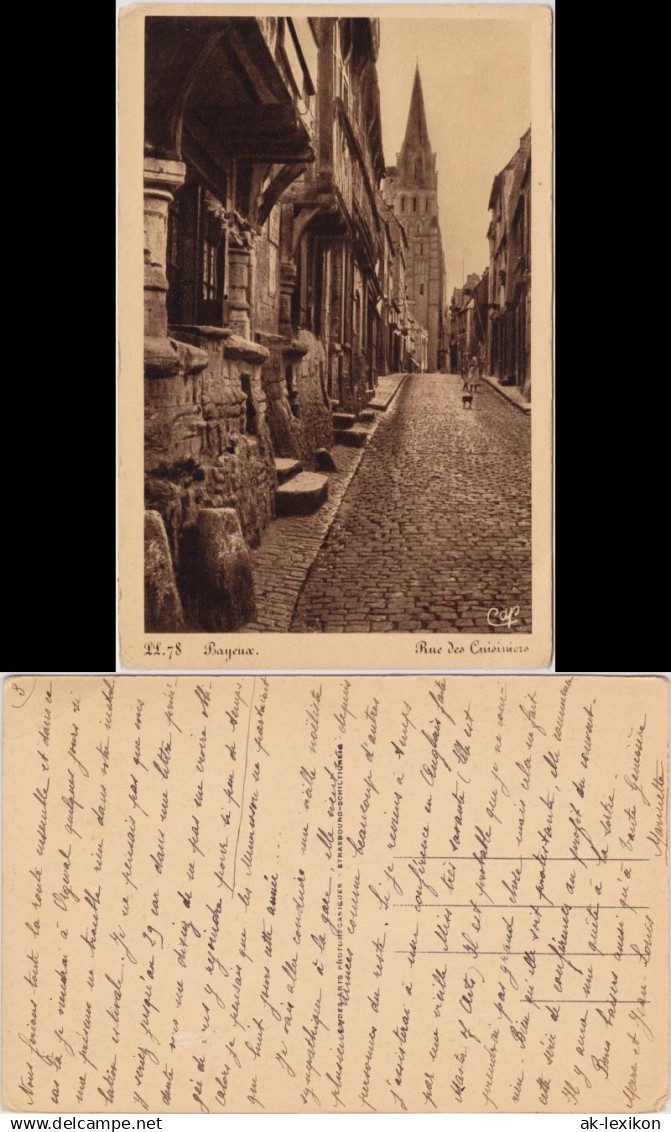 Cap
LL.78 Bayeux. Rue des Cuisiniers
3
Nous ferions toute la route ensemble et dans ce
cas là je viendrai à Orgeval quelques jours si
ma présence ne trouble rien dans votre instal
lation estivale. Je ne pensais pas que vous
y seriez jusqu'au 29 car dans une lettre précé
dente vous me disiez de ne pas me croire obli
gée de vous y rejoindre pour si peu de temps
alors je pensais que les Munesson ne partaient
que huit jours cette année...
Je vais aller conduire une vieille modiste
sympathique à la gare, elle vient ici depuis
plusieurs années comme beaucoup d'autres
personnes du reste. Si je reviens à temps
j'assisterai à une conférence en Anglais faite
par une vieille Miss très savante (Elle est
Master of Arts) Il est probable que je ne com
prendrai pas grand chose mais cela ne fait
rien. Bien qu'elle soit protestante, elle commence
cette série de conférences au profit du couvent.
Il y aura une quête à la sortie.
Bons baisers ainsi qu'à tante Geneviève
Marc et Jean-Louis
Mariette
LEVY & NEURDEIN RÉUNIS
LES ARTS PHOTOMÉCANIQUES - STRASBOURG-SCHILTIGHEIM
www.delcampe.net
ak-lexikon